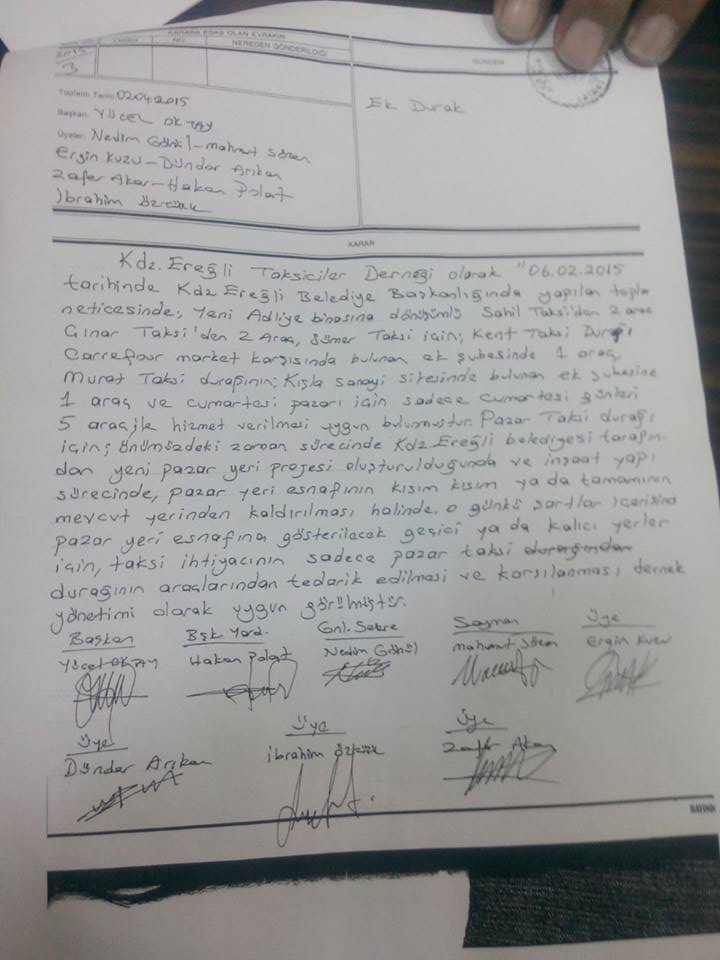 KARARA ESAS OLAN EVRAKIN
TARİHİ NO NEREDEN GÖNDERİLDİĞİ
GÜNDEM
2015
3
Toplantı Tarihi: 02.04.2015
Başkan: YÜCEL OKTAY
Üyeler: Nedim Gönül - mahmut Sözen
Ergin Kuzu - Dündar Arıkan
Zafer Akan - Hakan Polat
İbrahim Öztürk
Ek Durak
KARAR
Kdz. Ereğli Taksiciler Derneği olarak "06.02.2015
tarihinde Kdz Ereğli Belediye Başkanlığında yapılan toplu
neticesinde; Yeni Adliye binasına dönüşümlü Sahil Taksi'den 2 araç
Çınar Taksi'den 2 Araç, Sümer Taksi için; Kent Taksi Durağı
Carrefour market karşısında bulunan ek şubesinde 1 araç,
Murat Taksi durağının; Kışla sanayi sitesinde bulunan ek şubesine
1 araç ve cumartesi pazarı için sadece cumartesi günleri
5 araçle hizmet verilmesi uygun bulunmuştur. Pazar Taksi durağı
için; önümüzdeki zaman sürecinde Kdz. Ereğli belediyesi tarafın-
dan yeni pazar yeri projesi oluşturulduğunda ve inşaat yapı
sürecinde, pazar yeri esnafının kısım kısım ya da tamamının
mevcut yerinden kaldırılması halinde, o günkü şartlar içerisind
pazar yeri esnafına gösterilecek geçici ya da kalıcı yerler
için, taksi ihtiyacının sadece pazar taksi durağından
durağının araçlarından tedarik edilmesi ve karşılanması, dernek
yönetimi olarak uygun görülmüştür.
Başkan Bşk. Yard. Gnl. Sekre Sayman Üye
Yücel OKTAY Hakan Polat Nedim Gönül mahmut Sözen Ergin Kuzu
Üye Üye Üye
Dündar Arıkan İbrahim Öztürk Zafer Akan